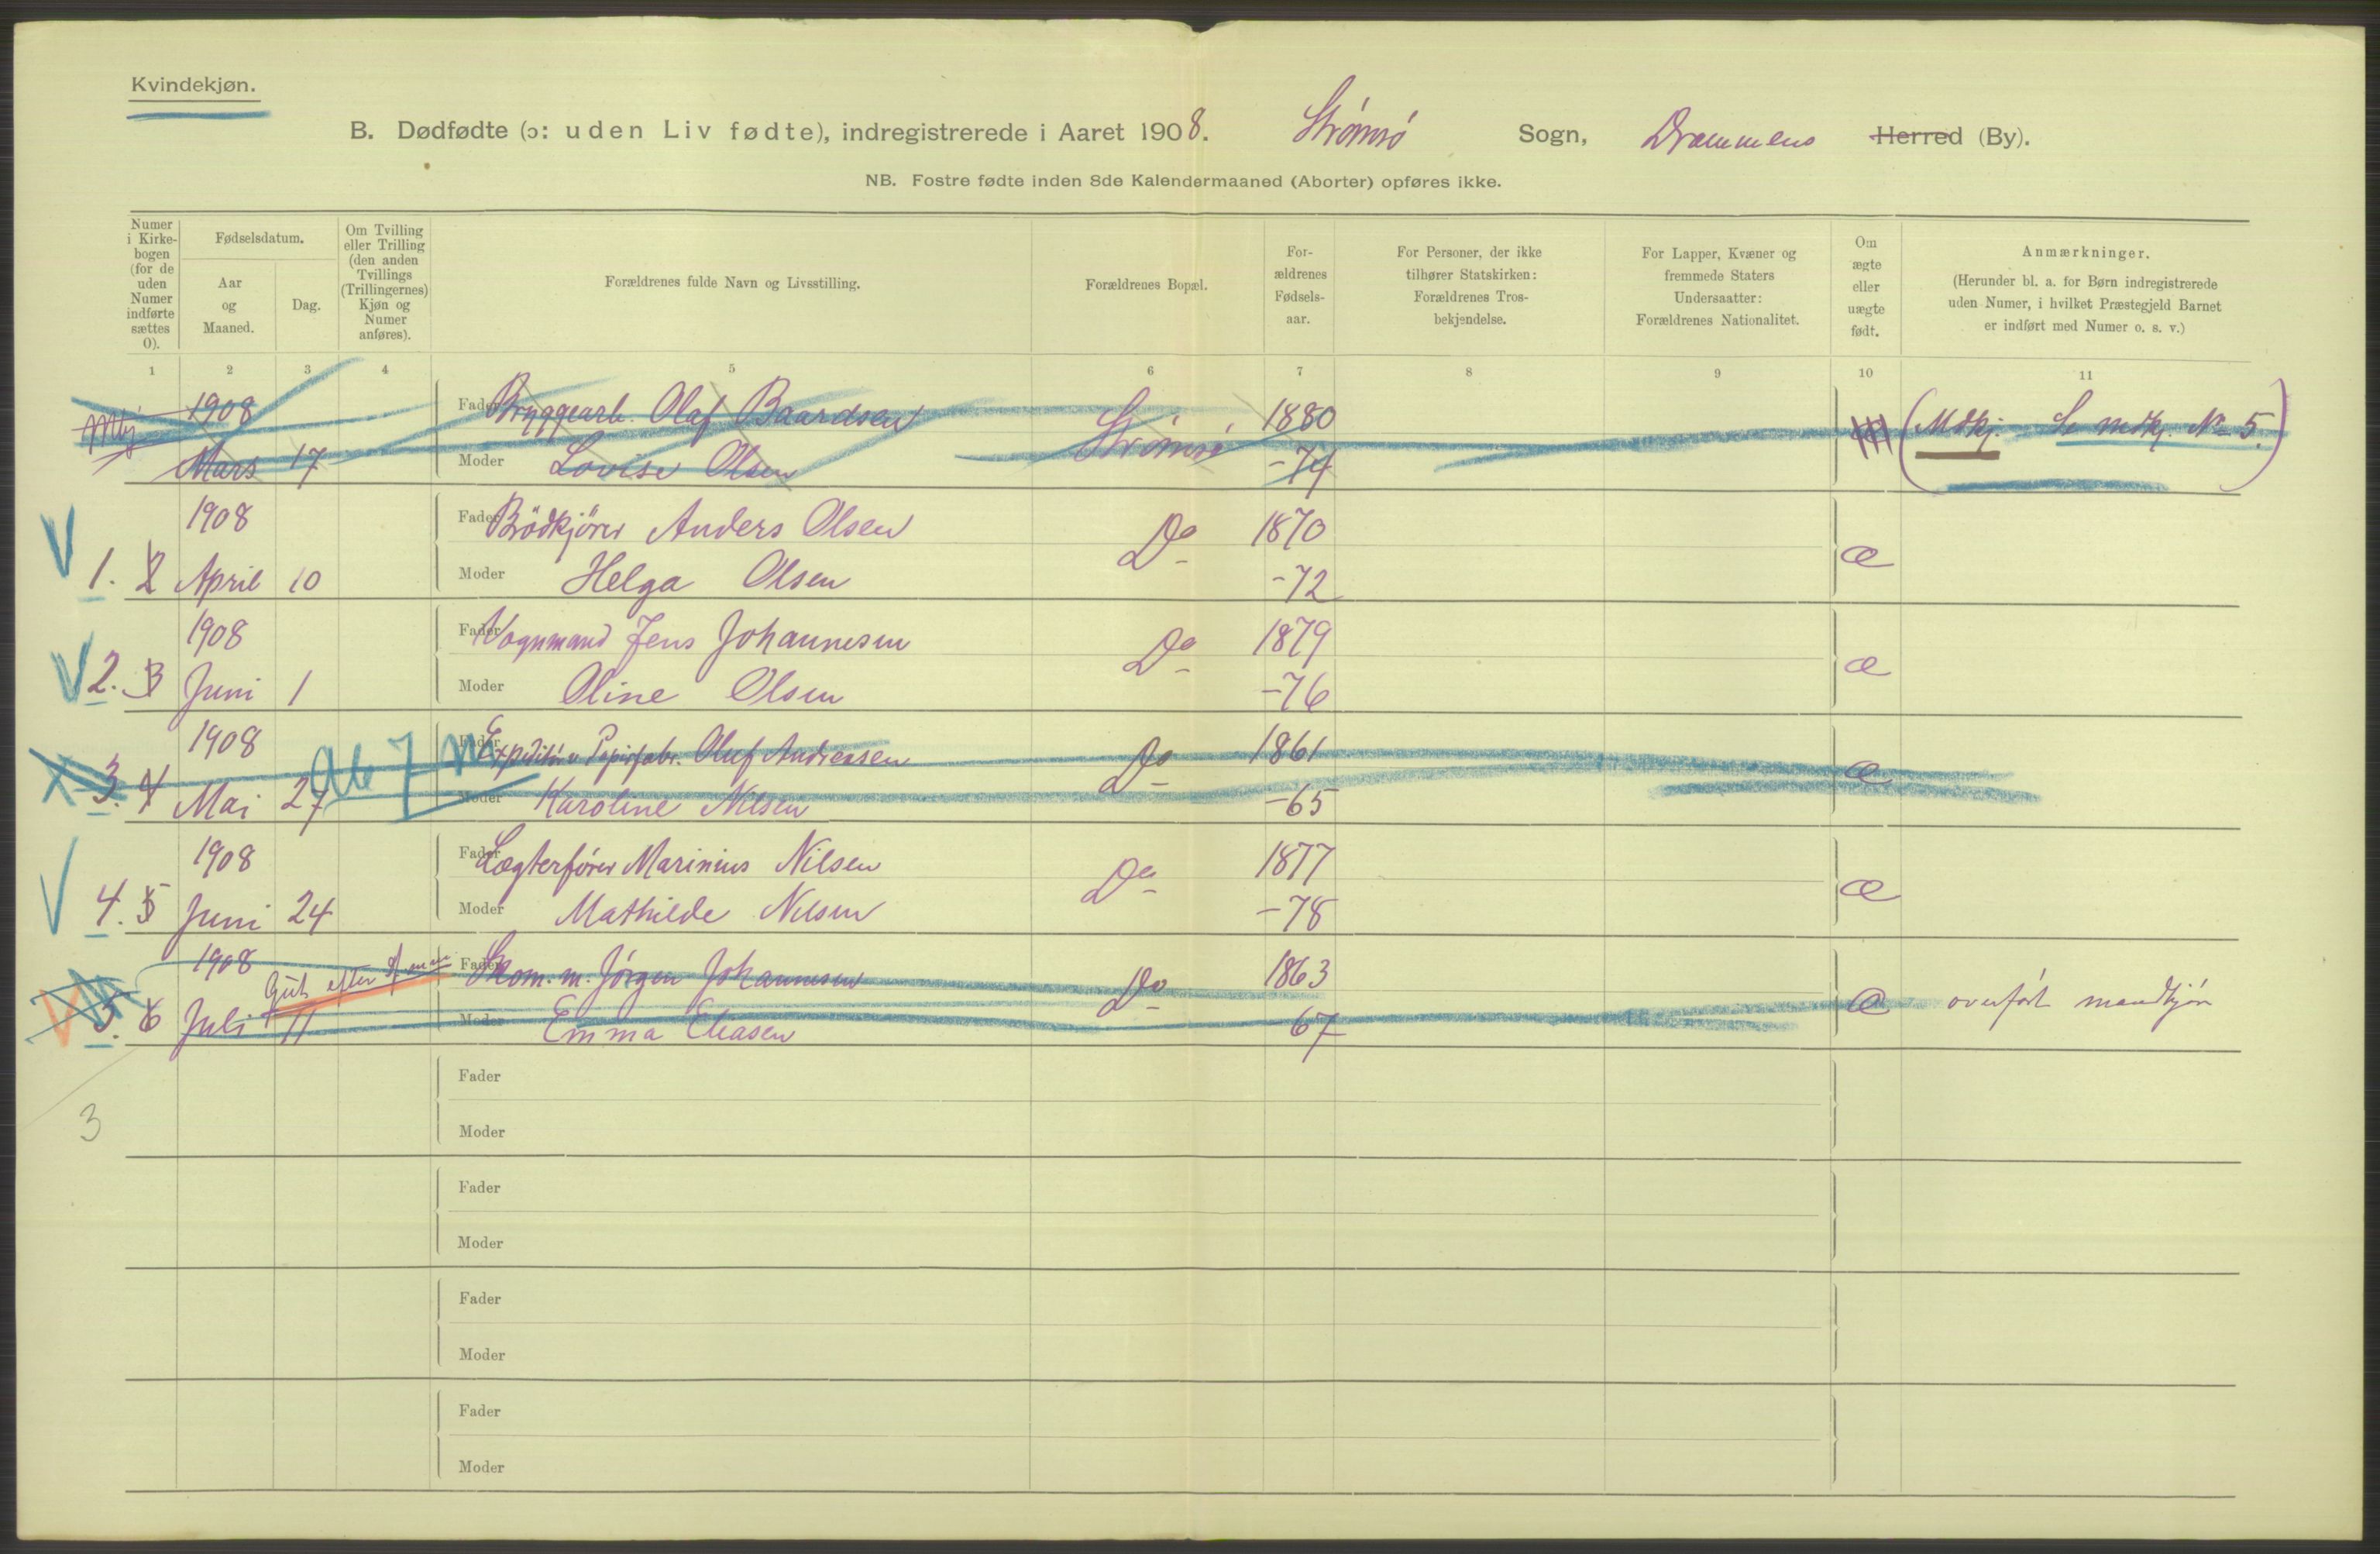 Kvindekjøn.
B. Dødfødte (ɔ: uden Liv fødte), indregistrerede i Aaret 1908. Strømsø Sogn, Drammens Herred (By).
NB. Fostre fødte inden 8de Kalendermaaned (Aborter) opføres ikke.
Numer i Kirke-bogen (for de uden Numer indførte sættes 0).
Fødselsdatum.
Aar og Maaned.
Dag.
Om Tvilling eller Trilling (den anden Tvillings (Trillingernes) Kjøn og Numer anføres).
Forældrenes fulde Navn og Livsstilling.
Forældrenes Bopæl.
For-ældrenes Fødsels-aar.
For Personer, der ikke tilhører Statskirken: Forældrenes Tros-bekjendelse.
For Lapper, Kvæner og fremmede Staters Undersaatter: Forældrenes Nationalitet.
Om ægte eller uægte født.
Anmærkninger.
(Herunder bl. a. for Børn indregistrerede uden Numer, i hvilket Præstegjeld Barnet er indført med Numer o. s. v.)
1 2 3 4 5 6 7 8 9 10 11
1908 Fader Bryggearb. Olaf Baardsen Strømsø 1880 (Mdkj. Se mdkj. No 5.)
Mars 17 Moder Lovise Olsen -74
1908 Fader Brödkjörer Anders Olsen Do 1870 æ
1. 2 April 10 Moder Helga Olsen -72
1908 Fader Vognmand Jens Johannesen Do 1879 æ
2. 3 Juni 1 Moder Oline Olsen -76
1908 Fader Expeditör v. Papirfabr. Oluf Andreasen Do 1861 æ
3. 4 Mai 27 Moder Karoline Nilsen -65
1908 Fader Lægterfører Marinius Nilsen Do 1877 æ
4. 5 Juni 24 Moder Mathilde Nilsen -78
1908 Gut efter Fader Skom. m. Jørgen Johannesen Do 1863 æ overført mandkjøn
5. 6 Juli 11 Moder Emma Eliasen 67
Fader
3
Moder
Fader
Moder
Fader
Moder
Fader
Moder